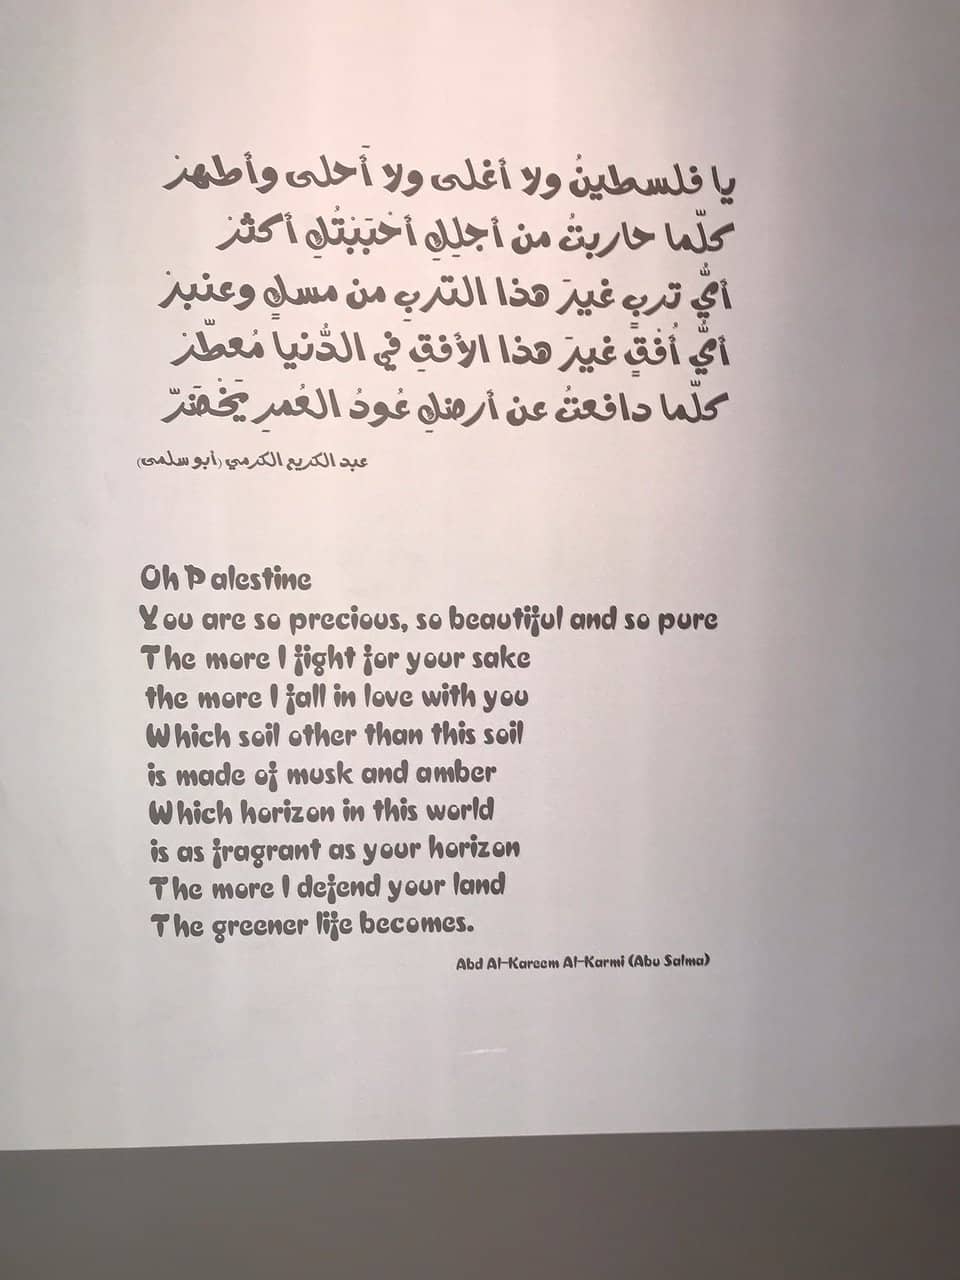 يا فلسطينُ ولا أغلى ولا أَحلى وأطهرْ
كلّما حاربتُ من أجلِكِ أحْبَبْتُكِ أكثرْ
أيُّ تربٍ غيرَ هذا التربِ من مسكٍ وعنبرْ
أيُّ أُفقٍ غيرَ هذا الأفقِ في الدُّنيا مُعطّرْ
كلّما دافعتُ عن أرضكِ عُودُ العُمرِ يَخْضَرّ
عبد الكريم الكرمي (أبو سلمى)
Oh Palestine
You are so precious, so beautiful and so pure
The more I fight for your sake
the more I fall in love with you
Which soil other than this soil
is made of musk and amber
Which horizon in this world
is as fragrant as your horizon
The more I defend your land
The greener life becomes.
Abd Al-Kareem Al-Karmi (Abu Salma)